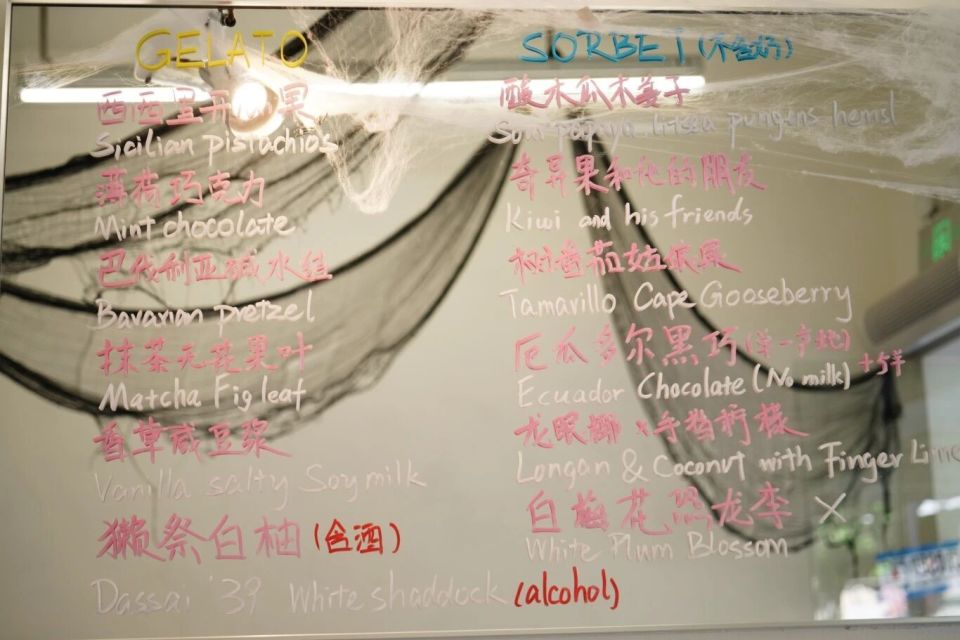 GELATO
西西里开心果
Sicilian pistachios
薄荷巧克力
Mint chocolate
巴伐利亚碱水结
Bavarian pretzel
抹茶无花果叶
Matcha Fig leaf
香草咸豆浆
Vanilla salty Soymilk
獭祭白柚(含酒)
Dassai '39 White shaddock (alcohol)
SORBEi (不含奶)
酸木瓜木姜子
Sour papaya Litsea pungens hemsl
奇异果和他的朋友
Kiwi and his friends
树番茄姑娘果
Tamarillo Cape Gooseberry
厄瓜多尔黑巧(单一产地)
+5¥
Ecuador Chocolate (No milk)
龙眼椰×手指柠檬
Longan & Coconut with Finger Lime
白梅花恐龙李 ×
White Plum Blossom